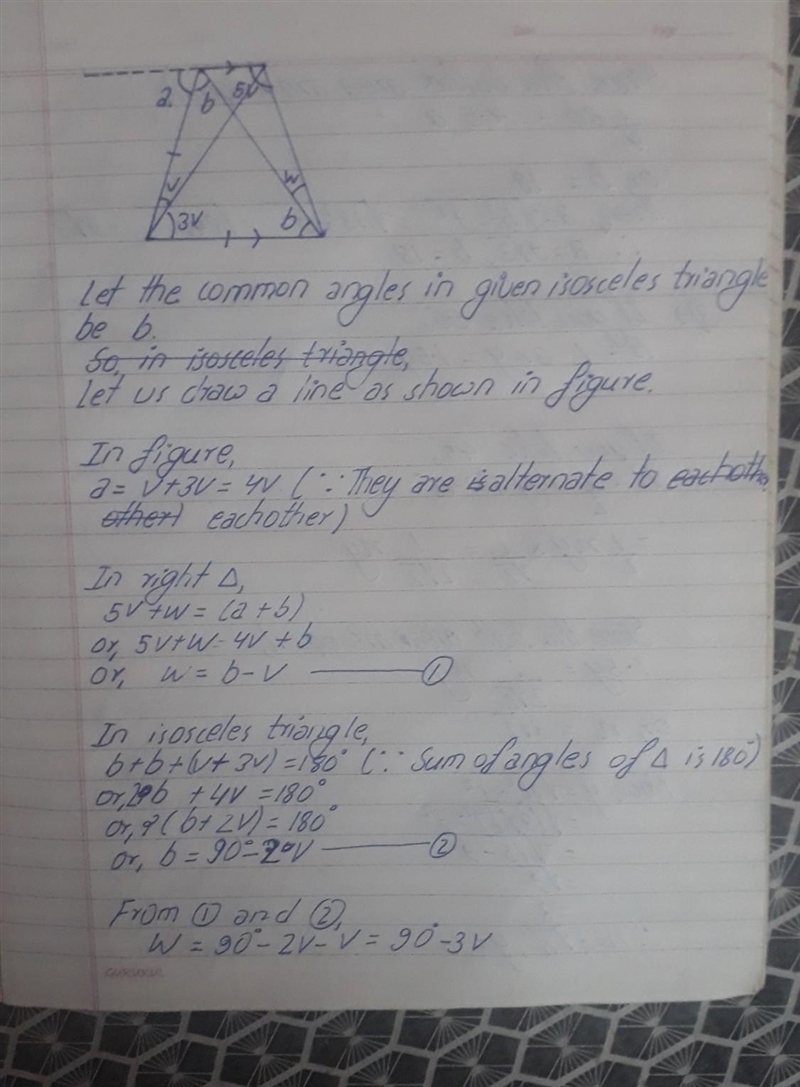 a
b
5V
V
W
3V
b
Let the common angles in given isosceles triangle
be b.
So, in isosceles triangle,
Let us draw a line as shown in figure.
In figure,
a = V+3V = 4V (∵ They are is alternate to each othe
other) eachother)
In right Δ,
5V+W = (a+b)
or, 5V+W = 4V+b
or, W = b-V ——— ①
In isosceles triangle,
b+b+(V+3V) = 180° (∵ Sum of angles of Δ is 180°)
or, 2b + 4V = 180°
or, 2(b+2V) = 180°
or, b = 90°-2V ——— ②
From ① and ②,
W = 90°-2V-V = 90°-3V